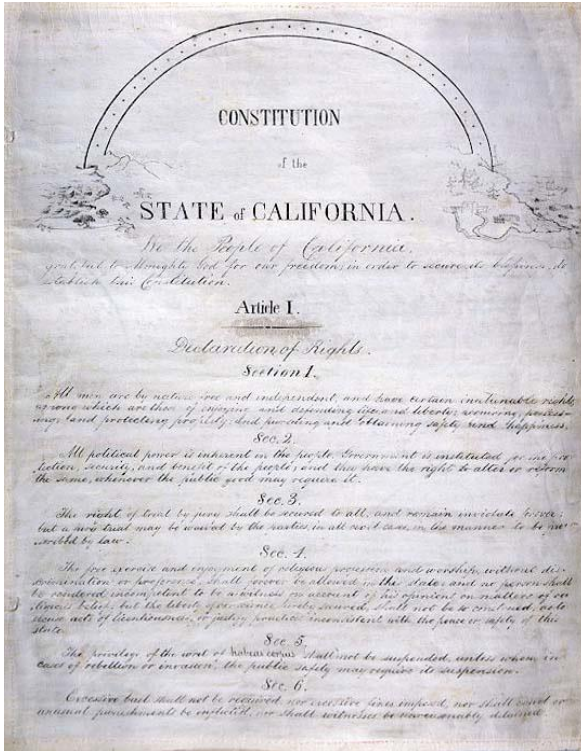 CONSTITUTION
of the
STATE of CALIFORNIA.
We the People of California,
grateful to Almighty God for our freedom; in order to secure its blessings, do
establish this Constitution.
Article I.
Declaration of Rights.
Section 1.
All men are by nature free and independent, and have certain inalienable rights,
among which are those of enjoying and defending life and liberty; acquiring, possess-
ing, and protecting property; and pursuing and obtaining safety and happiness.
Sec. 2.
All political power is inherent in the people. Government is instituted for the pro-
tection, security, and benefit of the people; and they have the right to alter or reform
the same, whenever the public good may require it.
Sec. 3.
The right of trial by jury shall be secured to all, and remain inviolate forever;
but a jury trial may be waived by the parties, in all civil cases, in the manner to be pre-
scribed by law.
Sec. 4.
The free exercise and enjoyment of religious profession and worship, without dis-
crimination or preference, shall forever be allowed in this state: and no person shall
be rendered incompetent to be a witness on account of his opinions on matters of re-
ligious belief; but the liberty of conscience, hereby secured, shall not be so construed, as to
excuse acts of licentiousness, or justify practices inconsistent with the peace or safety of this
state.
Sec. 5.
The privilege of the writ of habeas corpus shall not be suspended, unless when, in
cases of rebellion or invasion, the public safety may require its suspension.
Sec. 6.
Excessive bail shall not be required, nor excessive fines imposed, nor shall cruel or
unusual punishments be inflicted, nor shall witnesses be unreasonably detained.